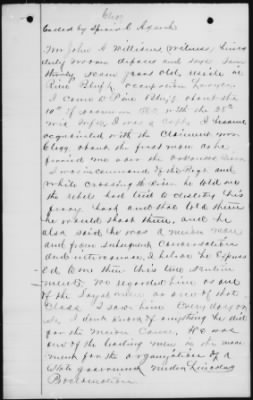 Clegg
Called by Special Agent
Mr John G Williams (witness) being
duly sworn deposes and says I am
thirty seven years old, reside in
Pine Bluff, occupation Lawyer
I came to Pine Bluff about the
10th of
Wis Infty, I was a Capt, I became
acquainted with the Claimant Mr.
Clegg about the first man as he
me over the Arkansas River
I was in command of the
while crossing the River he told me
the rebels had tried to destroy this
ferry boat and that he told them
he would shoot them, and he
also said he was a union man
and from subsequent conversations
and intercourse, I believe he express
ed to me then his true senti
ments, We regarded him as one
of the loyal men, as one of that
Class I saw him every day or
so, I don't know of anything he did
for the Union Cause, He was
one of the leading men in the move
ment for the organization of a
State government under Lincolns
Proclamation